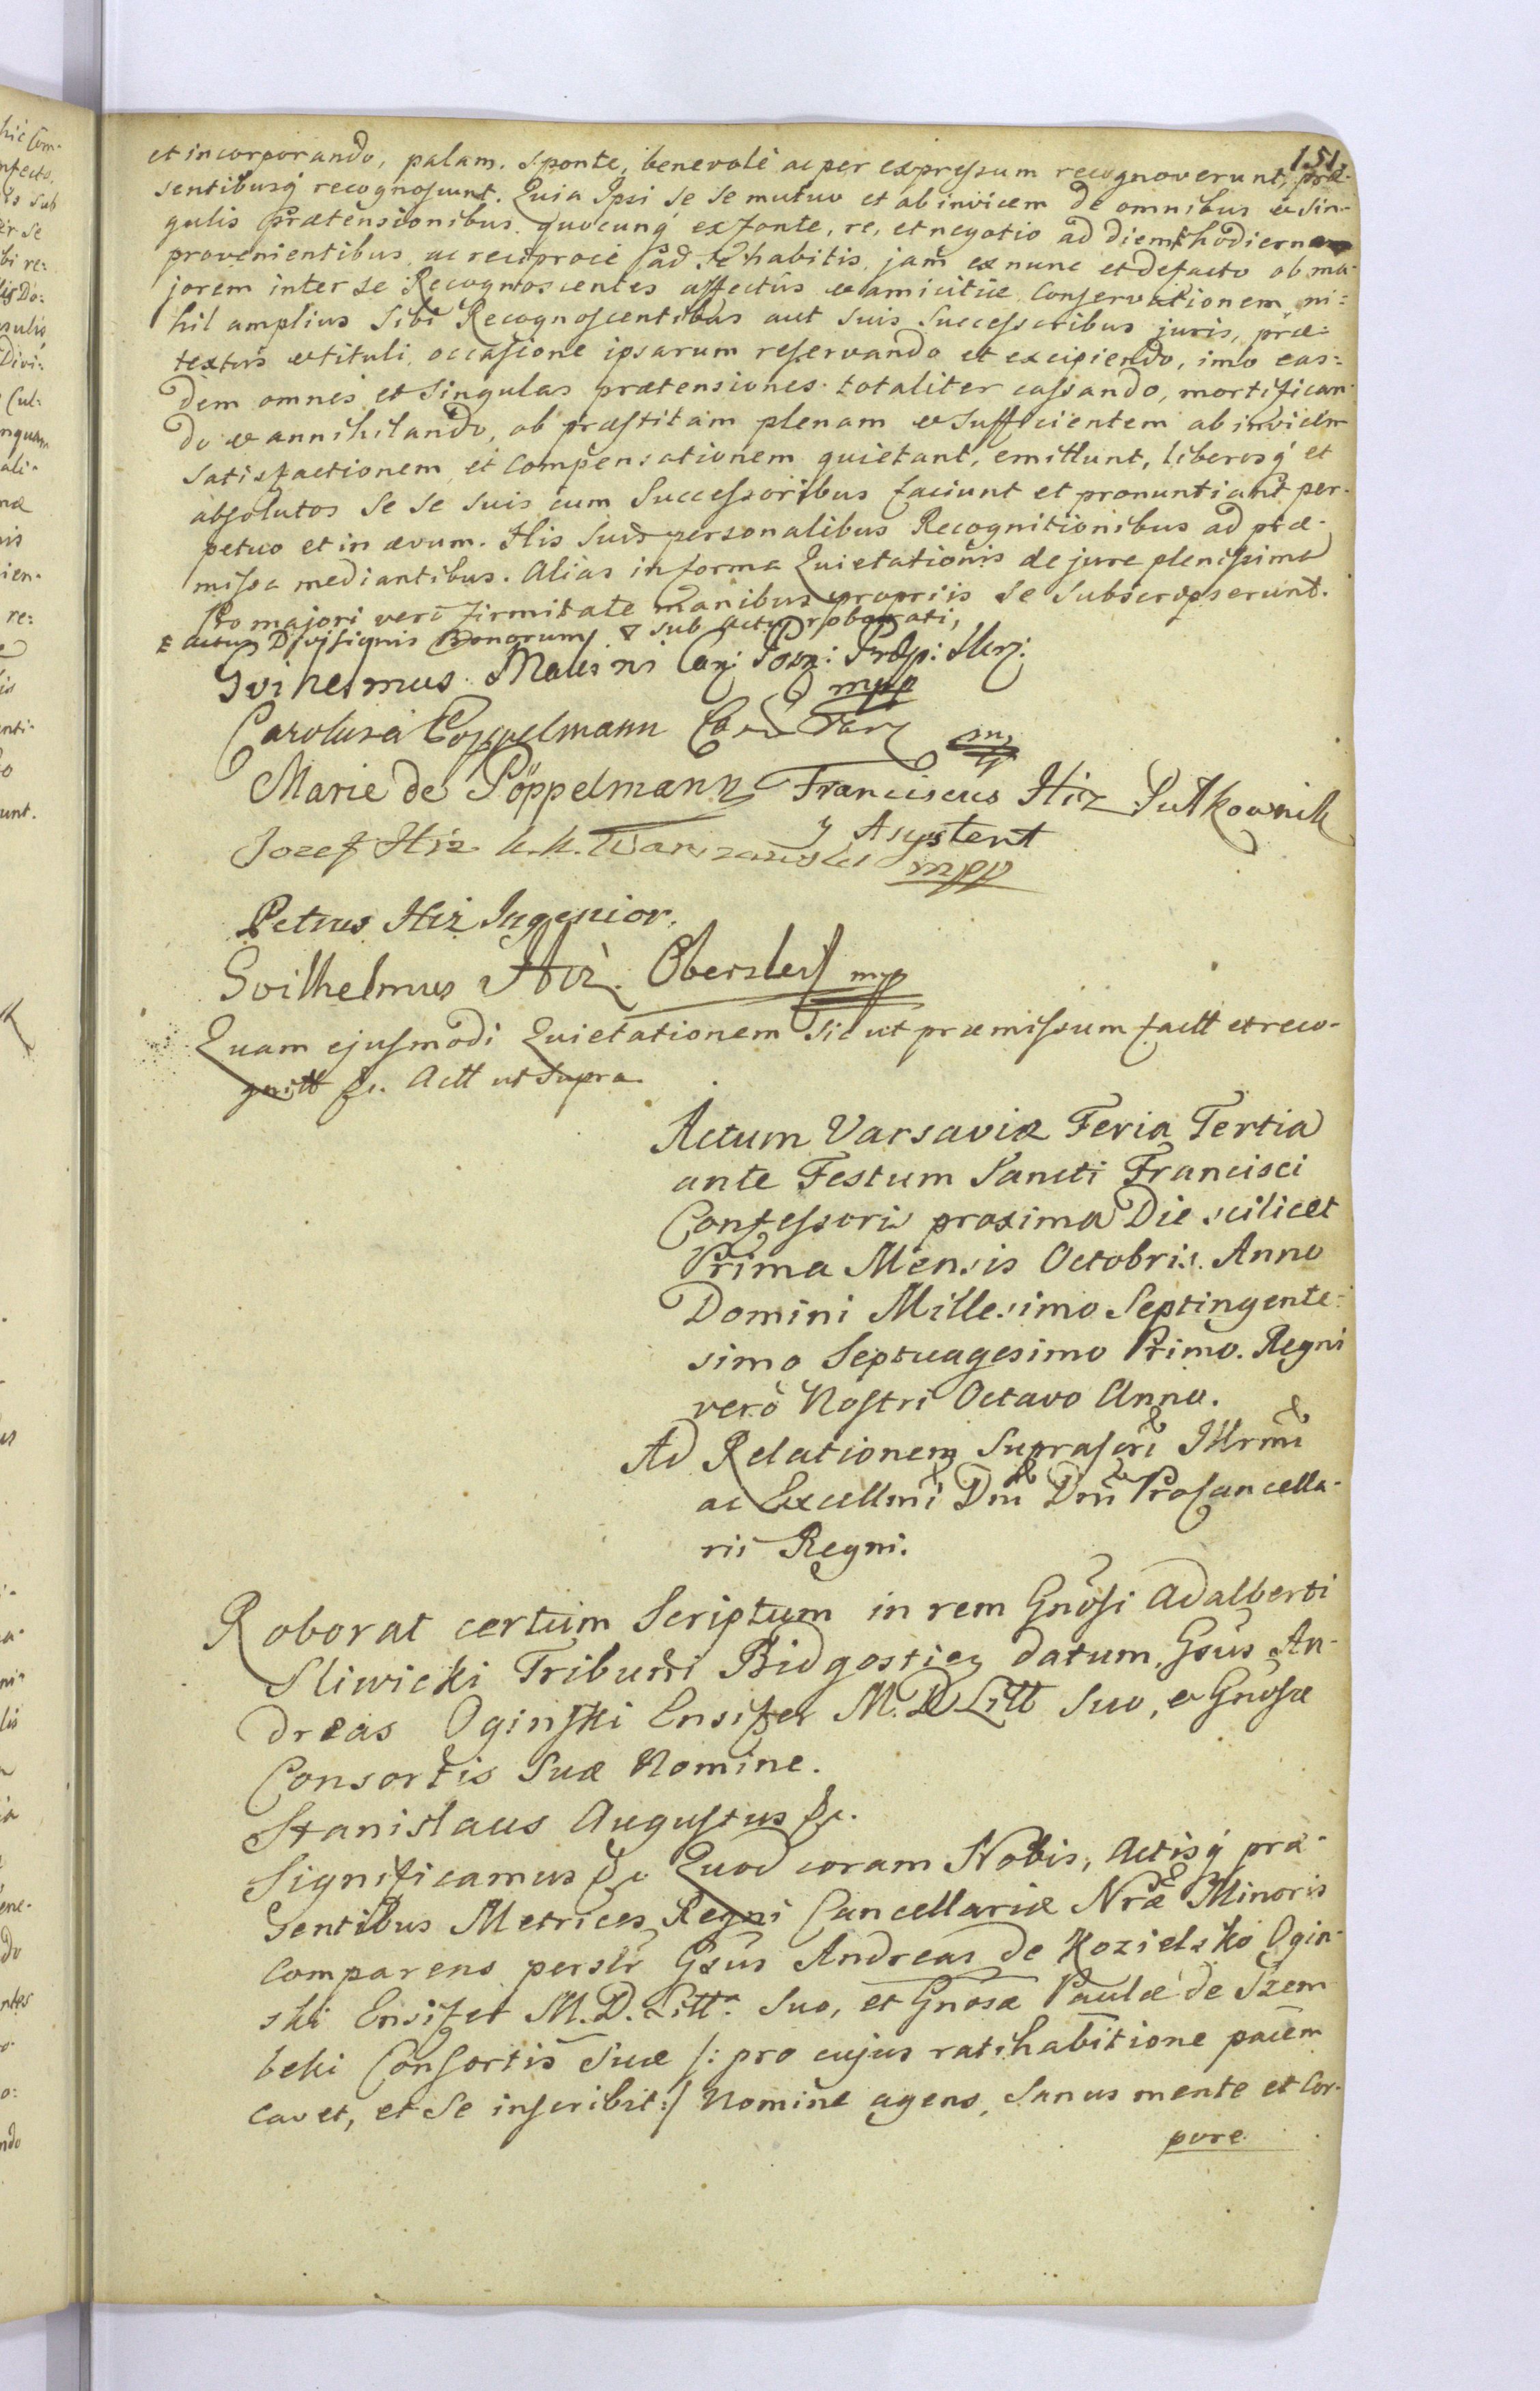 151.
et incorporando, palam. sponte, benevolè ac per expressum recognoverunt, præ-
sentibusq́ recognoscunt. Quia Ipsi se se mutuo et ab invicem de omnibus & sin-
gulis Prætensionibus quocunq́ ex fonte, re, et negotio ad diem hodiernam
provenientibus, ac reciprocè ad se habitis, jam ex nunc et de facto ob ma-
jorem inter se Recognoscentes affectûs & amicitiæ Conservationem ni-
hil amplius Sibi Recognoscentibus aut suis Successoribus juris, præ-
textus & tituli occasione ipsarum reservando et excipiendo, imo eas-
dem omnes et Singulas prætensiones totaliter cassando, mortifican-
do & annihilando, ob præstitam plenam & sufficientem ab invicem
Satisfactionem, et Compensationem quietant, emittunt, liberosq́ et
absolutos Se Se Suis cum Successoribus faciunt et pronuntiant per-
petuo et in ævum. His Suis personalibus Recognitionibus ad præ-
missa mediantibus. Alias in forma Quietationis de jure plenissima
Pro majori verò firmitate manibus propriis se subscripserunt.
actus Divisionis Bonorum sub actu roborati,
Gvihelmus Malsini Can: Posn: Præp: Mez:
mpp
Carolus à Poppelmann
Marie de Pöppelmann Franciscus Hiz Putkownik
y Asystent
Jozef Hiz K. K. Warszawski mpp
Petrus Hiz Ingenior.
Gvilhelmus Hiz. Oberszley mpp
Quam ejusmodi Quietationem sic ut præmissum factt et reco-
gnitt &c. Actt ut Supra.
Actum Varsaviæ Feria Tertia
ante Festum Sancti Francisci
Confessoris proxima Die scilicet
Prima Mensis Octobris. Anno
Domini Millesimo Septingente-
simo Septuagesimo Primo. Regni
verò Nostri Octavo Anno.
Ad Relationem Suprascri Illrmi
ac Excellmi Dni Dni Procancella-
rii Regni.
Roborat certum Scriptum in rem Gnosi Adalberti
Sliwicki Tribuni Bidgostien datum, Gsus An-
dreas Oginski Ensifer M. D Litt Suo, & Gnosæ
Consortis Suæ Nomine.
Stanislaus Augustus &c.
Significamus &c Quod coram Nobis, Actisq́ præ-
sentibus Metrices Regni Cancellariæ Nræ Minoris
Comparens persлr Gsus Andreas de Kozielsko Ogin-
ski Ensifer M. D. Litt. Suo, et Gnosæ Paulæ de Szem
beki Consortis Suæ /: pro cujus ratihabitione pacem
cavet, et Se inscribit :/ Nomine agens, Sanus mente et Cor-
pore